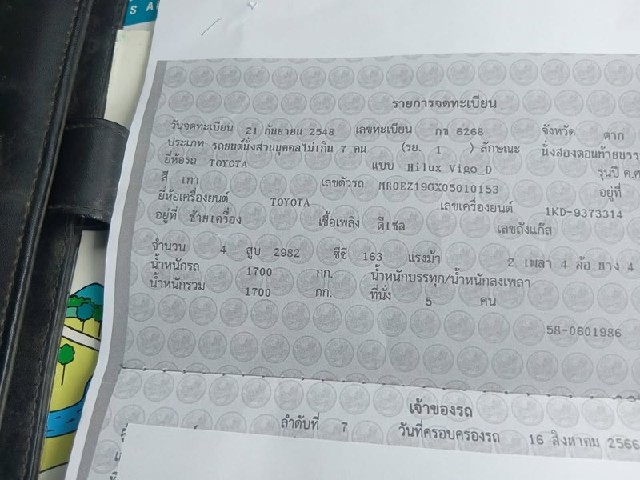 S A
รายการจดทะเบียน
วันจดทะเบียน 21 กันยายน 2548 เลขทะเบียน กข 6266 จังหวัด ตาก
ประเภท รถยนต์นั่งส่วนบุคคลไม่เกิน 7 คน (รย. 1 ) ลักษณะ นั่งสองตอนท้ายบรร
ยี่ห้อรถ TOYOTA แบบ Hilux Vigo D รุ่นปี ค.ศ
สี เทา เลขตัวรถ MR0EZ19GX05010153 อยู่ที่
ยี่ห้อเครื่องยนต์ TOYOTA เลขเครื่องยนต์ 1KD-9373314
อยู่ที่ ซ้ายเครื่อง เชื้อเพลิง ดีเซล เลขถังแก๊ส
จำนวน 4 สูบ 2982 ซีซี 163 แรงม้า 2 เพลา 4 ล้อ ยาง 4
น้ำหนักรถ 1700 กก. น้ำหนักบรรทุก/น้ำหนักลงเพลา
น้ำหนักรวม 1700 กก. ที่นั่ง 5 คน
58-0601986
เจ้าของรถ
ลำดับที่ 7 วันที่ครอบครองรถ 16 สิงหาคม 2566